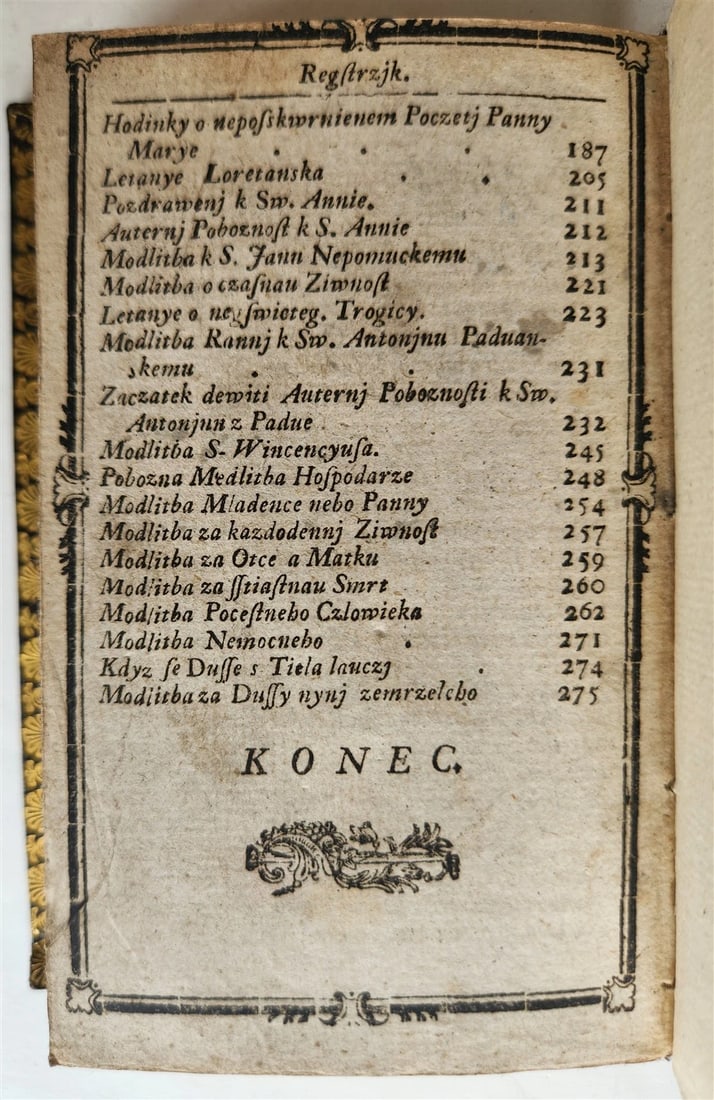 Regſtrzjk.
Hodinky o nepoſskwrnienem Poczetj Panny
Marye . . . 187
Letanye Loretanska . . 205
Pozdrawenj k Sw. Annie. 211
Auternj Poboznoſt k S. Annie 212
Modlitba k S. Janu Nepomuckemu 213
Modlitba o czaſnau Ziwnoſt 221
Letanye o neyſwieteg. Trogicy. 223
Modlitba Rannj k Sw. Antonjnu Paduan-
skemu . . 231
Zaczatek dewiti Auternj Poboznoſti k Sw.
Antonjnu z Padue . 232
Modlitba S- Wincencyuſa. 245
Pobozna Modlitba Hoſpodarze 248
Modlitba Mladence nebo Panny 254
Modlitba za kazdodennj Ziwnoſt 257
Modlitba za Otce a Matku 259
Modlitba za ſſtiaſtnau Smrt 260
Modlitba Poceſtneho Czlowieka 262
Modlitba Nemocneho . 271
Kdyz ſe Duſſe s Tiela lauczj . 274
Modlitba za Duſſy nynj zemrzeleho 275
KONEC.